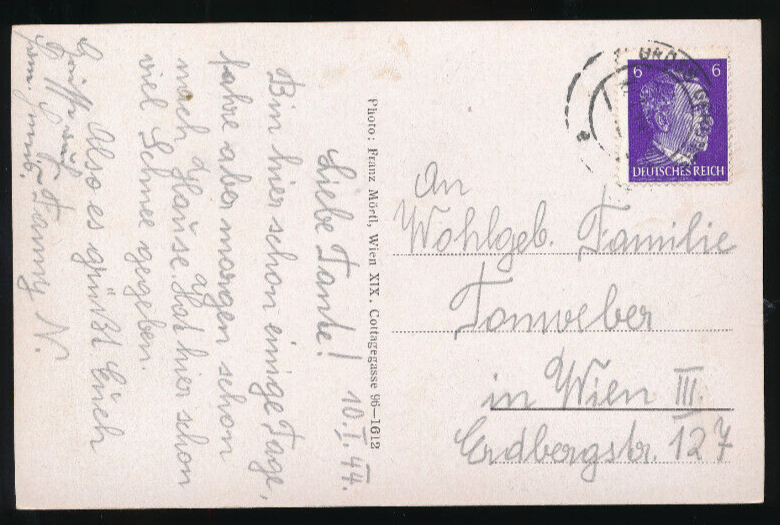 Liebe Tante! 10.I.44.
Bin hier schon einige Tage,
fahre aber morgen schon
nach Hause. Hat hier schon
viel Schnee gegeben.
Also es grüßt Euch
Fanny N.
Photo: Franz Mörtl, Wien XIX. Cottagegasse 96—1612
6 6
DEUTSCHES REICH
An
Wohlgeb. Familie
Tomweber
in Wien III.
Erdbergstr. 127